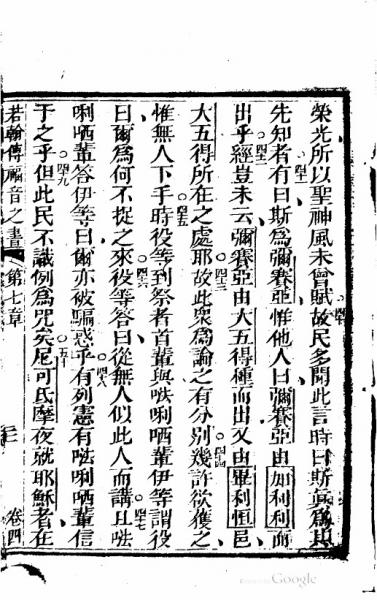 榮光所以聖神風未曾賦故民多聞此言時曰斯真為其
先知者有曰斯為彌賽亞惟他人曰彌賽亞由加利利而
出乎經豈未云彌賽亞由大五得種而出又由畢利恒邑
大五得所在之處耶故此眾為論之有分別幾許欲獲之
惟無人下手時役等到祭者首輩與𠵽唎哂輩伊等謂役
曰爾為何不捉之來役等答曰從無人似此人而講且𠵽
唎哂輩答伊等曰爾亦被騙惑乎有列憲有𠵽唎哂輩信
于之乎但此民不識例為咒矣尼可氐摩夜就耶穌者在
若翰傳福音之書 第七章 卷四
Google